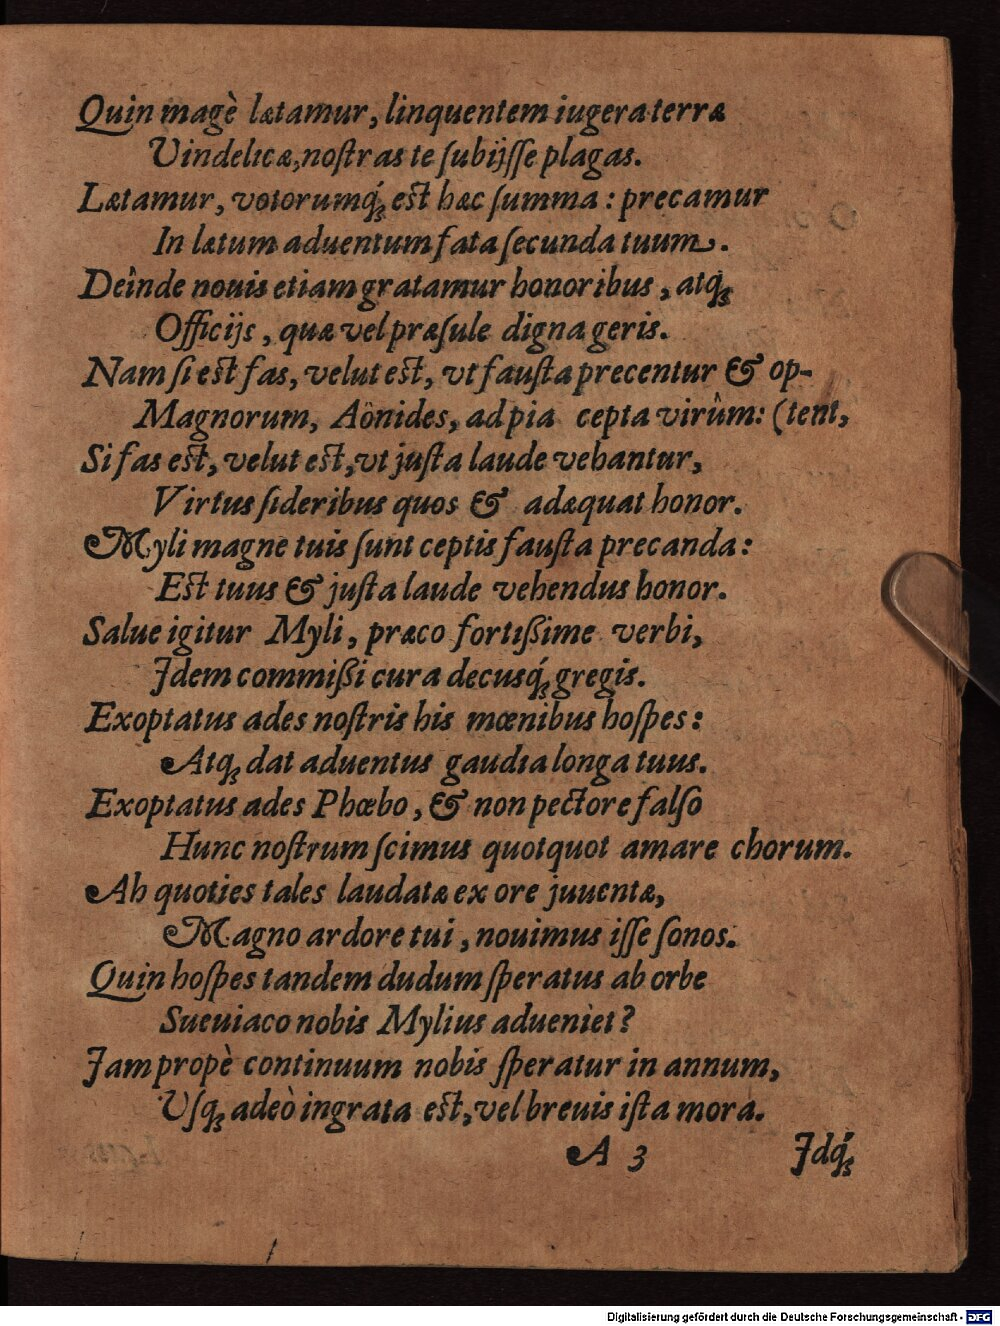 Quin magè lætamur, linquentem iugera terræ
Uindelicæ, nostras te subijsse plagas.
Lætamur, votorumq́; est hæc summa: precamur
In lætum aduentum fata secunda tuum.
Deînde nouis etiam gratamur honoribus, atq́;
Officijs, quæ vel præsule digna geris.
Nam si est fas, velut est, vt fausta precentur & op-
Magnorum, Aönides, ad pia cepta virûm: (tent,
Si fas est, velut est, vt justa laude vehantur,
Virtus sideribus quos & adæquat honor.
Myli magne tuis sunt ceptis fausta precanda:
Est tuus & justa laude vehendus honor.
Salue igitur Myli, præco fortißime verbi,
Jdem commißi cura decusq́; gregis.
Exoptatus ades nostris his mœnibus hospes:
Atq; dat aduentus gaudia longa tuus.
Exoptatus ades Phœbo, & non pectore falso
Hunc nostrum scimus quotquot amare chorum.
Ah quoties tales laudatæ ex ore juuentæ,
Magno ardore tui, nouimus isse sonos.
Quin hospes tandem dudum speratus ab orbe
Sueuiaco nobis Mylius adueniet?
Jam propè continuum nobis speratur in annum,
Usq; adeò ingrata est, vel breuis ista mora.
A 3 Jdq́;
Digitalisierung gefördert durch die Deutsche Forschungsgemeinschaft - DFG